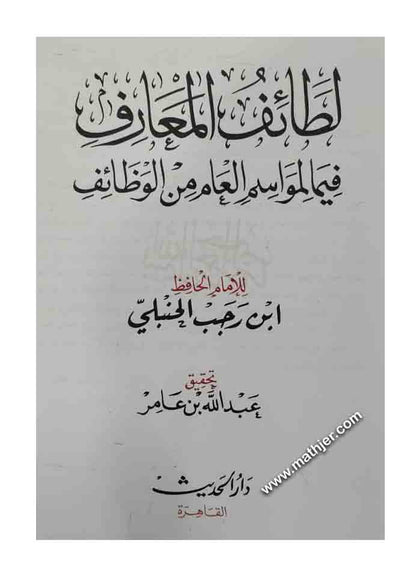 لَطَائِفُ المَعَارِفِ
فِيمَا لِمَوَاسِمِ العَامِ مِنَ الوَظَائِفِ
لِلإِمَامِ الحَافِظِ
ابْنِ رَجَبٍ الحَنْبَلِيِّ
تحقيق
عَبْدُ اللَّهِ بْنُ عَامِر
دَارُ الحَدِيث
القَاهِرَة
www.mathjer.com